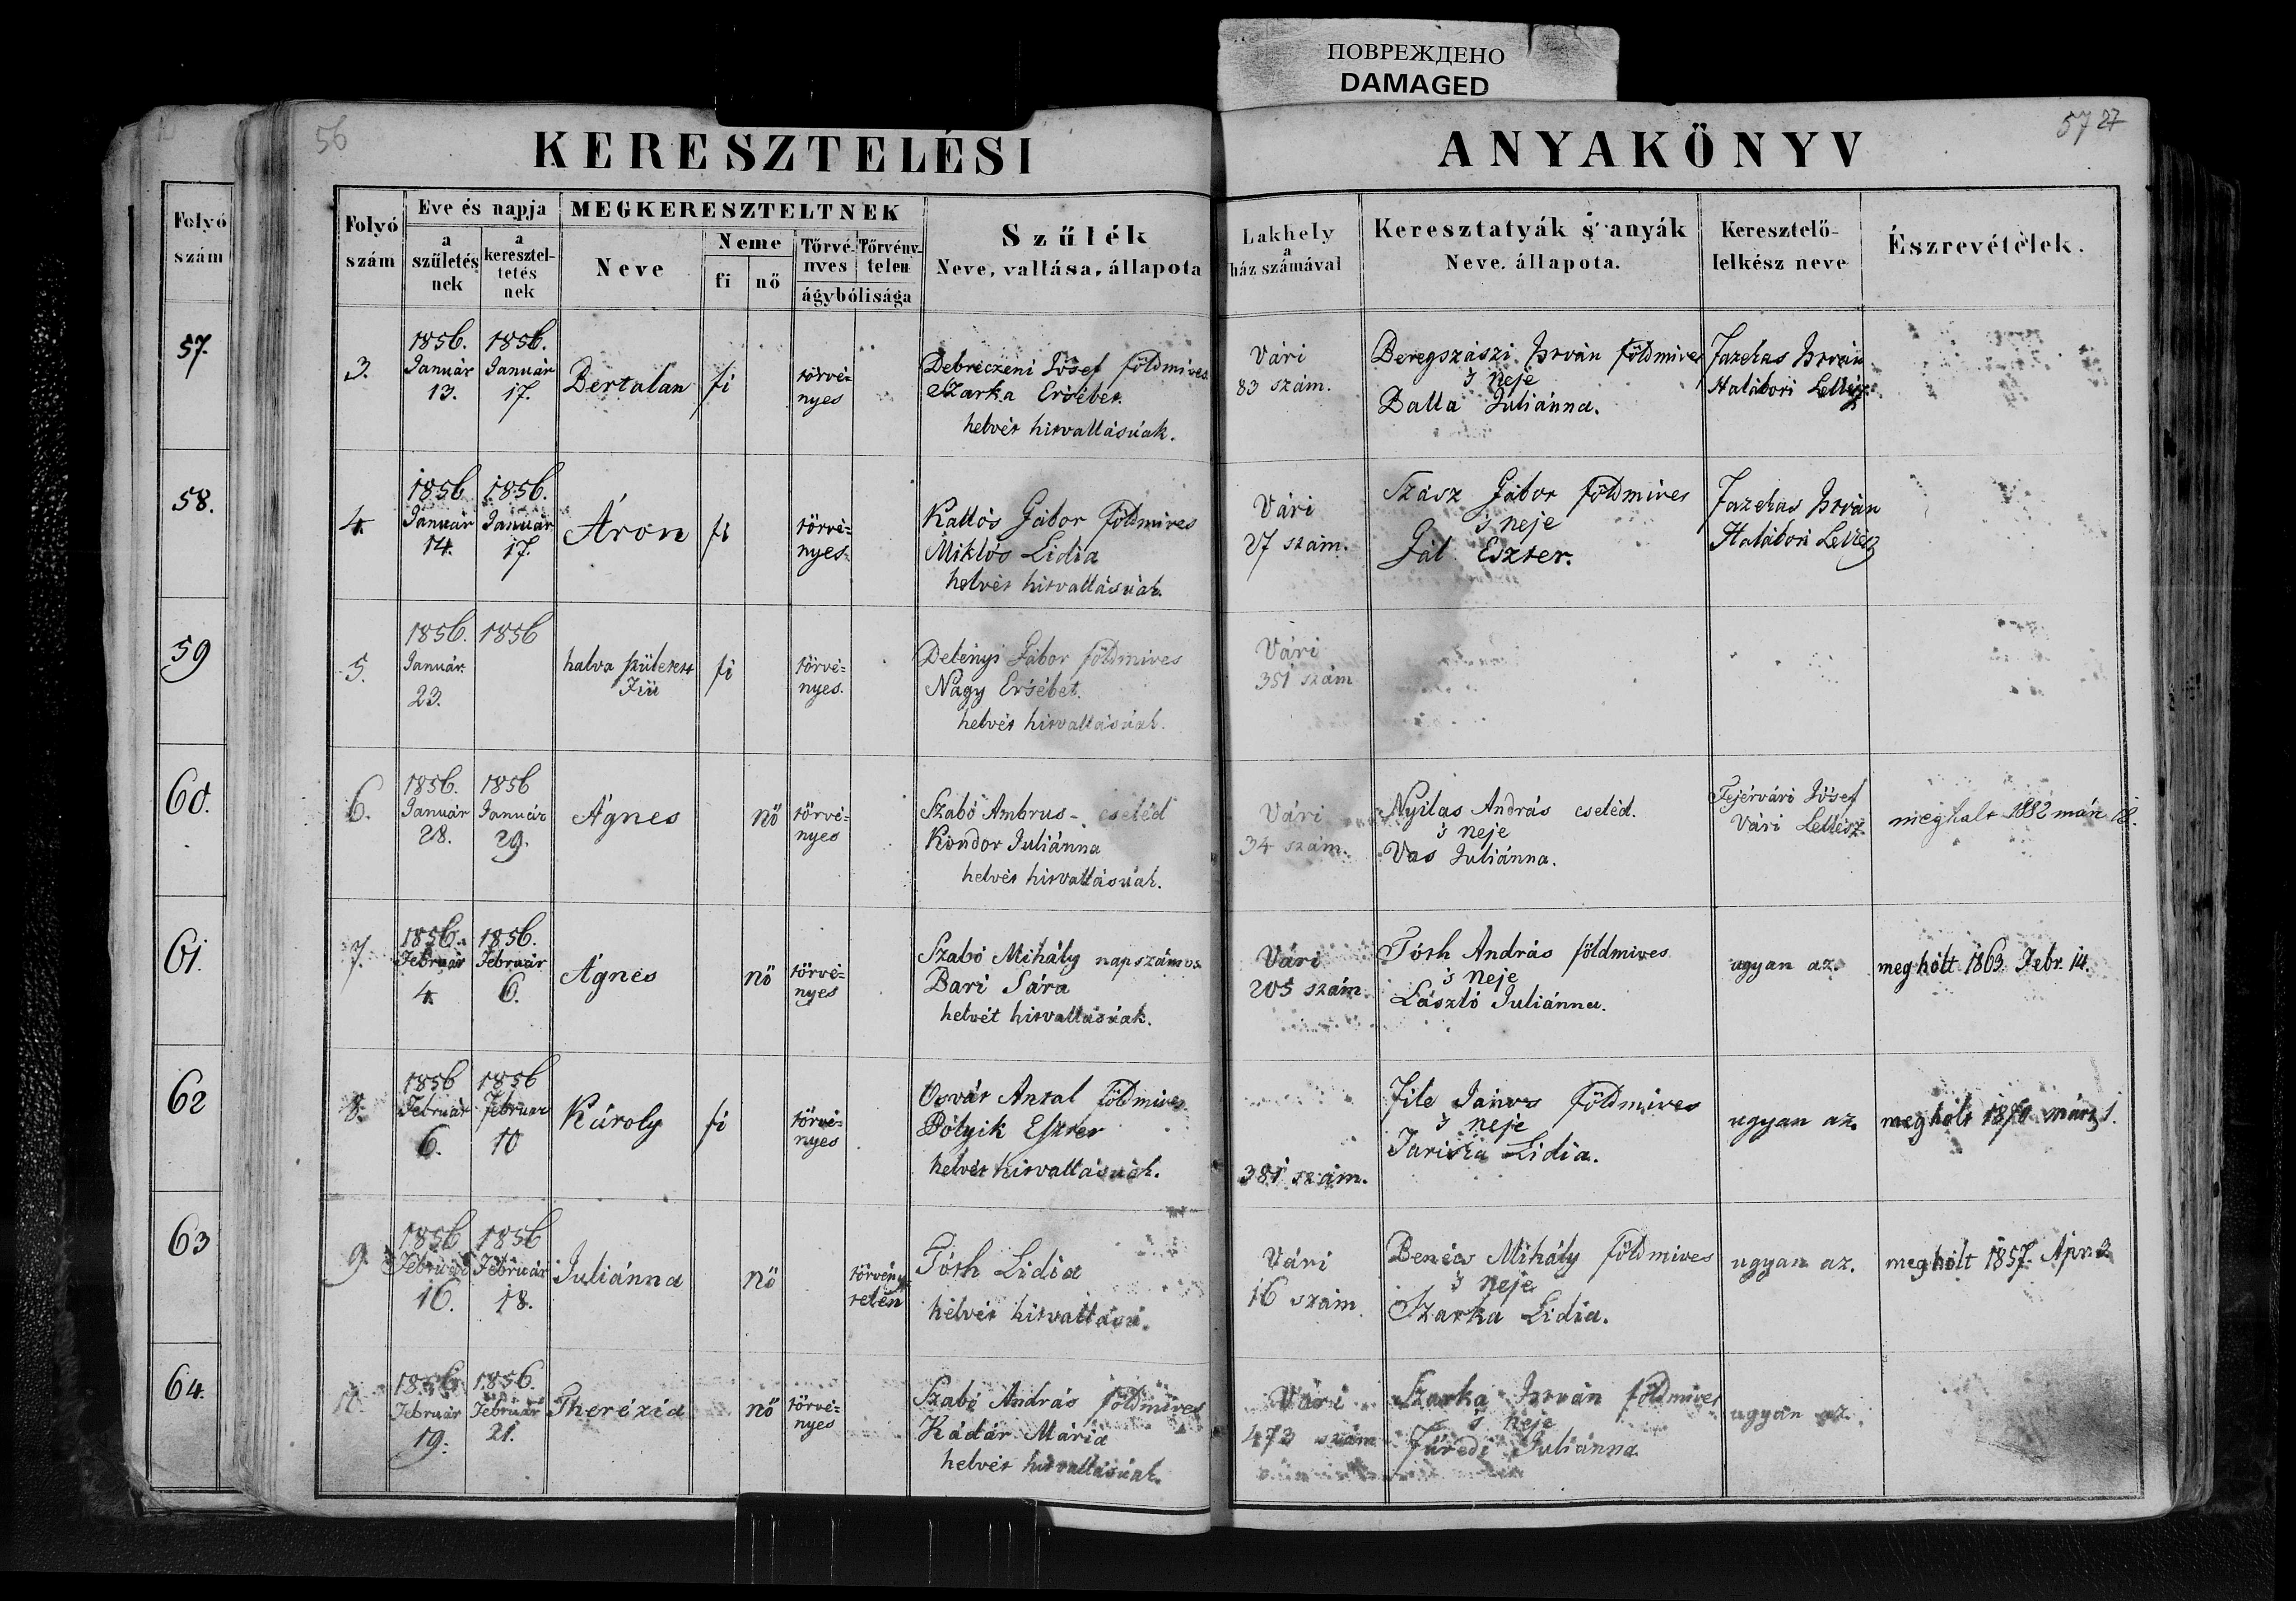 ПОВРЕЖДЕНО
DAMAGED
56
57 27
KERESZTELÉSI ANYAKÖNYV
Folyó szám
57.
58.
59
60.
61.
62
63
64.
Folyó szám
Eve és napja
a születésnek
a kereszteltetésnek
MEGKERESZTELTNEK
Neve
Neme
fi
nő
Törvényes
Törvénytelen
ágybólisága
Szűlék
Neve, vallása, állapota
Lakhely
a
ház számával
Keresztatyák s' anyák
Neve. állapota.
Keresztelő-
lelkész neve
Észrevételek.
3.
1856. Január 13.
1856. Január 17.
Bertalan
fi
törvé-
nyes
Debreczeni Jósef földmives
Szarka Ersébet
helvét hitvallásúak.
Vári
83 szám.
Beregszászi István földmives
's neje
Balla Juliánna.
Fazekas István
Halábori Lelkész
4.
1856 Január 14.
1856. Január 17.
Áron
fi
törvé-
nyes.
Kallós Gábor földmives
Miklós Lidia
helvét hitvallásúak.
Vári
27 szám.
Szász Gábor földmives
's neje
Gál Eszter.
Fazekas István
Halábori Lelkész
5.
1856. Január. 23.
1856
halva született
Fiú
fi
törvé-
nyes.
Delényi Gábor földmives
Nagy Ersébet.
helvét hitvallásúak.
Vári
351 szám
6.
1856. Január 28.
1856 Január 29.
Ágnes
nő
törvé-
nyes
Szabó Ambrus - cseléd
Kondor Juliánna
helvét hitvallásúak.
Vári
34 szám.
Nyilas András cseléd.
's neje
Vas Juliánna.
Fejérvári Jósef
Vári Lelkész
meghalt 1882 18.
7.
1856. Február 4.
1856. Február 6.
Ágnes
nő
törvé-
nyes
Szabó Mihály napszámos
Bari Sára
helvét hitvallásúak.
Vári
205 szám.
Tóth András földmives
's neje
László Juliánna.
ugyan az.
meghólt 1863. Febr. 14.
8.
1856 Február 6.
1856 Február 10
Károly
fi
törvé-
nyes
Osvát Antal földmives
Pólyik Eszter
helvét hitvallásúak.
381 szám.
File János földmives
's neje
Lidia.
ugyan az.
meghólt márcz 1.
9.
1856 Február 16.
1856 Február 18.
Juliánna
nő
törvény-
telen
Tóth Lidia
helvét hitvallású.
Vári
16 szám
Mihály földmives
's neje
Szarka Lidia.
ugyan az.
meghólt 1857. Apr. 2.
10.
1856 Február 19.
1856. Február 21.
Therézia
nő
törvé-
nyes
Szabó András földmives
Kádár Mária
helvét hitvallásúak.
Vári
473 szám
Szarka István földmives
's neje
Füredi Juliánna
ugyan az.